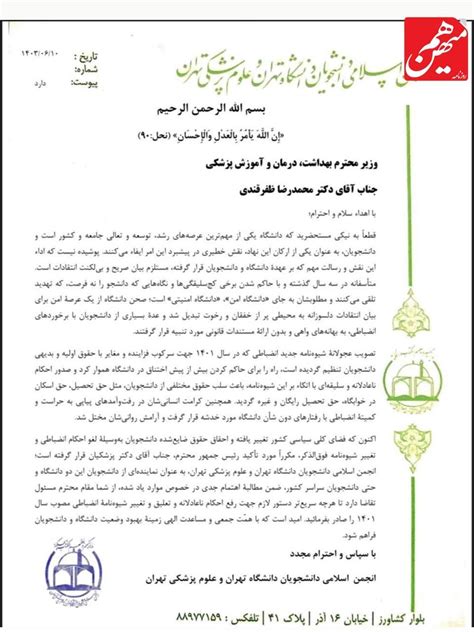 هم میهن
روزنامه
اسلامی دانشجویان دانشگاه تهران و علوم پزشکی تهران
تاریخ : ۱۴۰۳/۰۶/۱۰
شماره:
پیوست: دارد
بسم الله الرحمن الرحیم
«إِنَّ اللَّهَ يَأْمُرُ بِالْعَدْلِ وَالْإِحْسَانِ» (نحل:۹۰)
وزیر محترم بهداشت، درمان و آموزش پزشکی
جناب آقای دکتر محمدرضا ظفرقندی
با اهداء سلام و احترام؛
قطعاً به نیکی مستحضرید که دانشگاه یکی از مهم‌ترین عرصه‌های رشد، توسعه و تعالی جامعه و کشور است و
دانشجویان، به عنوان یکی از ارکان این نهاد، نقش خطیری در پیشبرد این امر ایفاء می‌کنند. پوشیده نیست که اداء
این نقش و رسالت مهم که بر عهدهٔ دانشگاه و دانشجویان قرار گرفته، مستلزم بیان صریح و بی‌لکنت انتقادات است.
متأسفانه در سه سال گذشته و با حاکم شدن برخی کج‌سلیقگی‌ها و نگاه‌هایی که دانشجو را نه فرصت، که تهدید
تلقی می‌کنند و مطلوبشان به جای «دانشگاه امن»، «دانشگاه امنیتی» است؛ صحن دانشگاه از یک عرصهٔ امن برای
بیان انتقادات دلسوزانه به محیطی پر از خفقان و رخوت تبدیل شد و عدهٔ بسیاری از دانشجویان با برخوردهای
انضباطی، به بهانه‌های واهی و بدون ارائهٔ مستندات قانونی مورد تنبیه قرار گرفتند.
تصویب عجولانهٔ شیوه‌نامه جدید انضباطی که در سال ۱۴۰۱ جهت سرکوب فزاینده و مغایر با حقوق اولیه و بدیهی
دانشجویان تنظیم گردیده است، راه را برای حاکم کردن بیش از پیش اختناق در دانشگاه هموار کرد و صدور احکام
ناعادلانه و سلیقه‌ای با اتکاء بر این شیوه‌نامه، باعث سلب حقوق مختلفی از دانشجویان، مثل حق تحصیل، حق اسکان
در خوابگاه، حق تحصیل رایگان و غیره گردید. همچنین کرامت انسانی‌شان در رفت‌وآمدهای پیاپی به حراست و
کمیتهٔ انضباطی با رفتارهای دون شأن دانشگاه مورد خدشه قرار گرفت و آرامش روانی‌شان مختل شد.
اکنون که فضای کلی سیاسی کشور تغییر یافته و احقاق حقوق ضایع‌شده دانشجویان به‌وسیلهٔ لغو احکام انضباطی و
تغییر شیوه‌نامه فوق‌الذکر، مکرراً مورد تأکید رئیس جمهور محترم، جناب آقای دکتر پزشکیان قرار گرفته است؛
انجمن اسلامی دانشجویان دانشگاه تهران و علوم پزشکی تهران، به عنوان نماینده‌ای از دانشجویان این دو دانشگاه و
حتی دانشجویان سراسر کشور، ضمن مطالبهٔ اهتمام جدی در خصوص موارد یاد شده، از شما مقام محترم مسئول
تقاضا دارد تا هرچه سریع‌تر دستور لازم جهت رفع احکام ناعادلانه و تعلیق و تغییر شیوه‌نامهٔ انضباطی مصوب سال
۱۴۰۱ را صادر بفرمائید. امید است که با همّت جمعی و مساعدت الهی زمینهٔ بهبود وضعیت دانشگاه و دانشجویان
فراهم گردد.
با سپاس و احترام مجدد
انجمن اسلامی دانشجویان دانشگاه تهران و علوم پزشکی تهران
بلوار کشاورز | خیابان ۱۶ آذر | پلاک ۴۱ | تلفکس : ۸۸۹۷۷۱۵۹